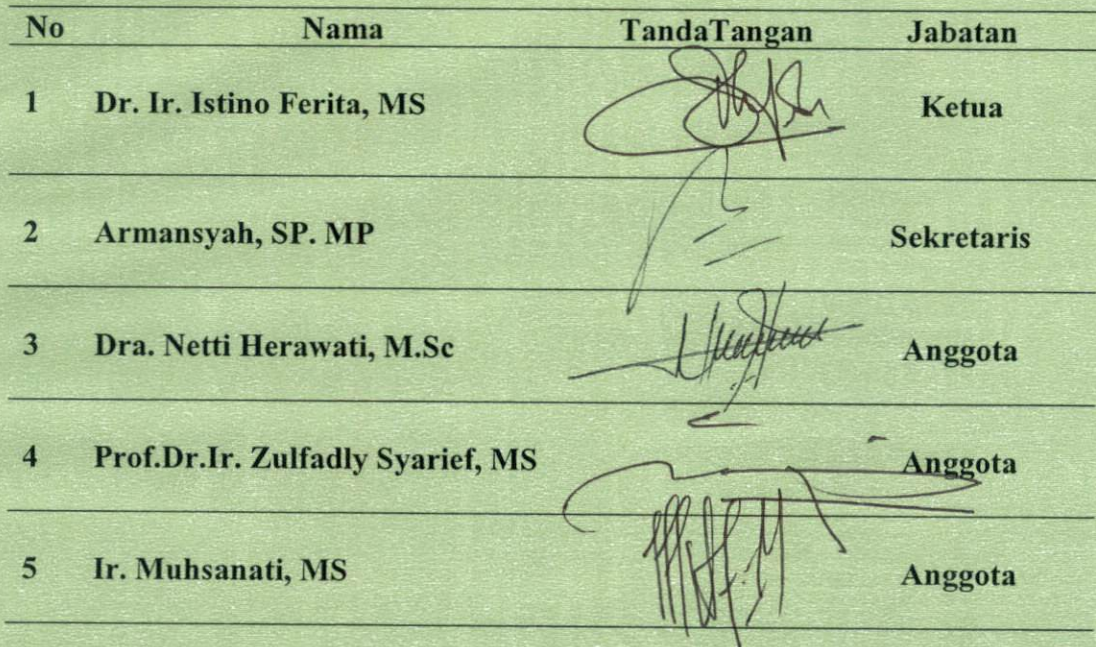 No Nama TandaTangan Jabatan
1 Dr. Ir. Istino Ferita, MS Ketua
2 Armansyah, SP. MP Sekretaris
3 Dra. Netti Herawati, M.Sc Anggota
4 Prof.Dr.Ir. Zulfadly Syarief, MS Anggota
5 Ir. Muhsanati, MS Anggota